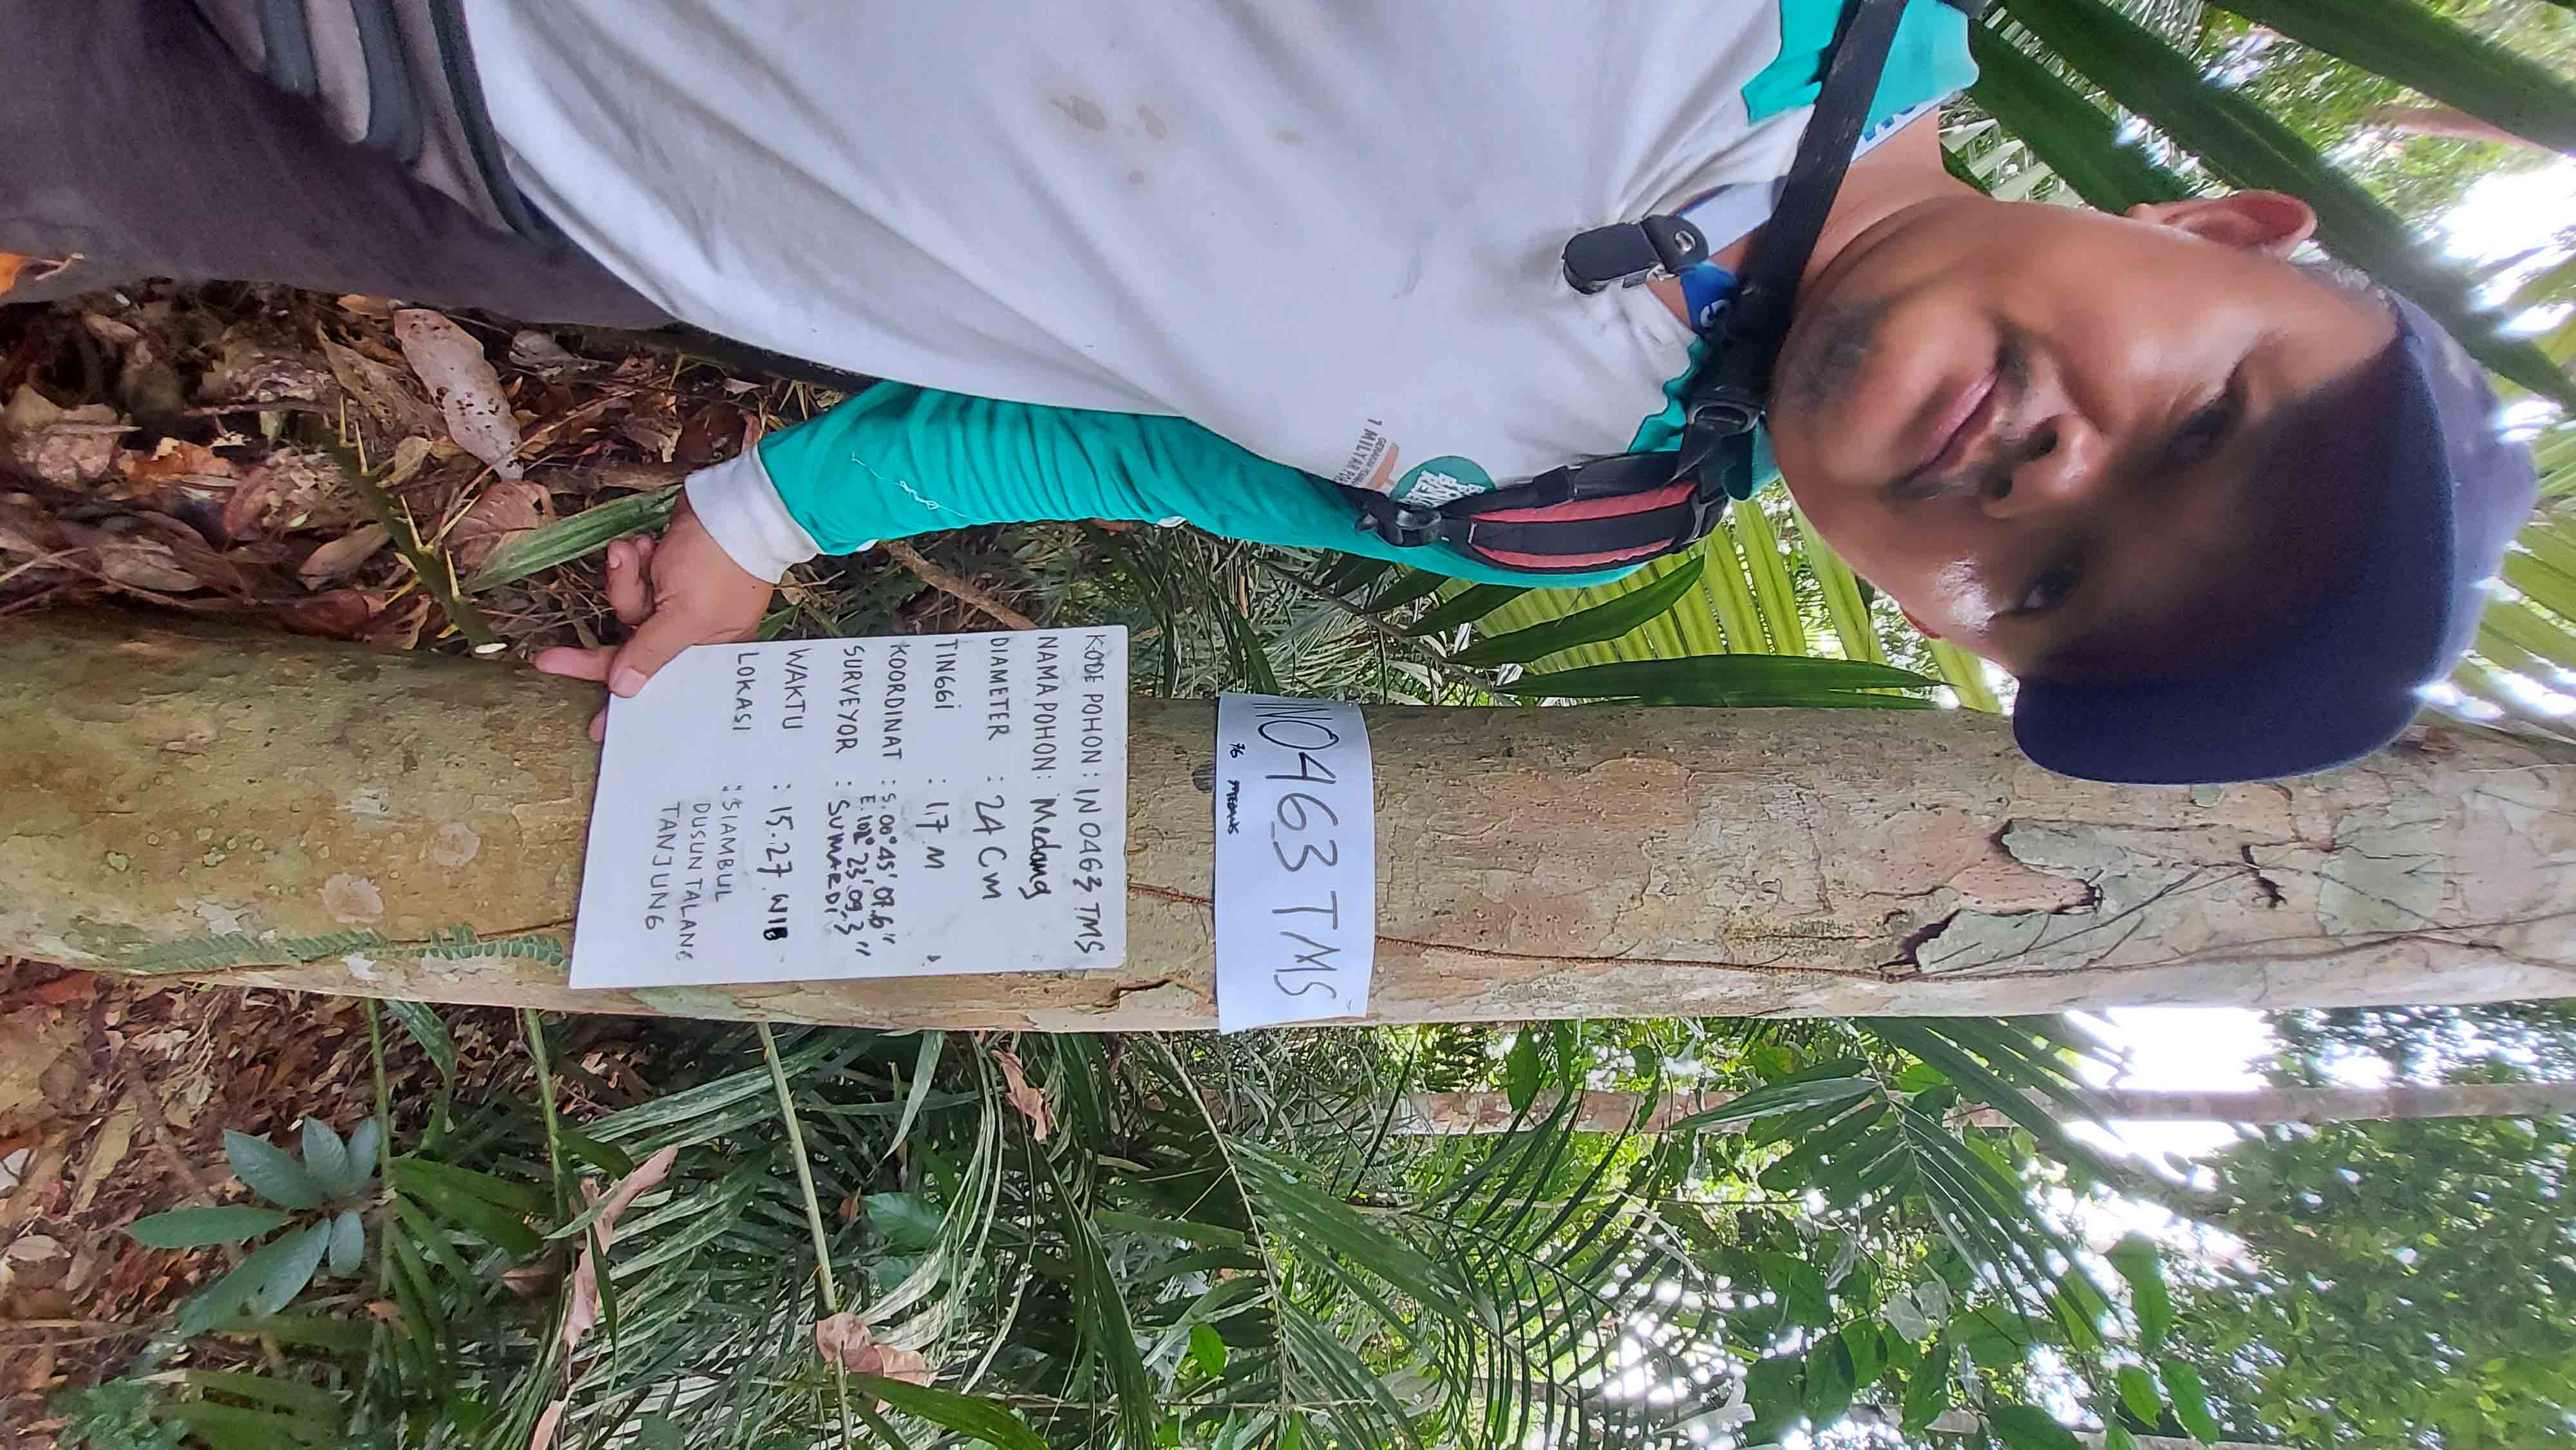 1 MILYAR
IN0463 TMS
76 MEDANG
KODE POHON : IN 0463 TMS
NAMA POHON : Medang
DIAMETER : 24 Cm
TINGGI : 17 M
KOORDINAT : S. 00° 45' 07.6"
E. 102° 23' 09.3"
SURVEYOR : SUMARDI
WAKTU : 15.27 WIB
LOKASI : SIAMBUL
DUSUN TALANG
TANJUNG